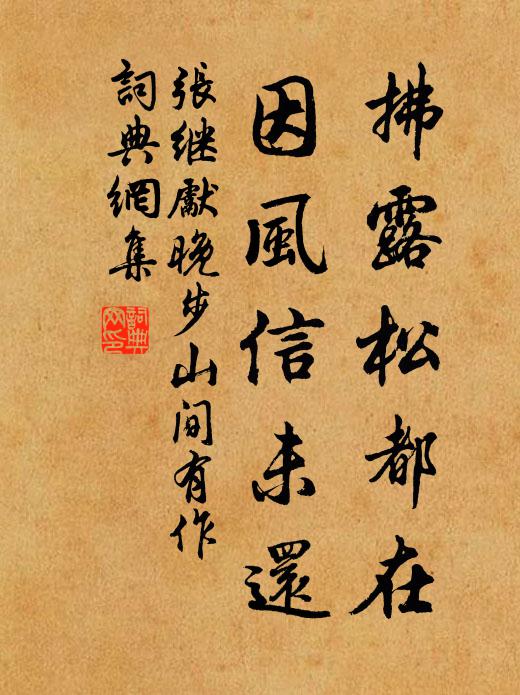 拂露松都在
因風信未還
張继獻晚步山间有作
詞典網集
詞典網印